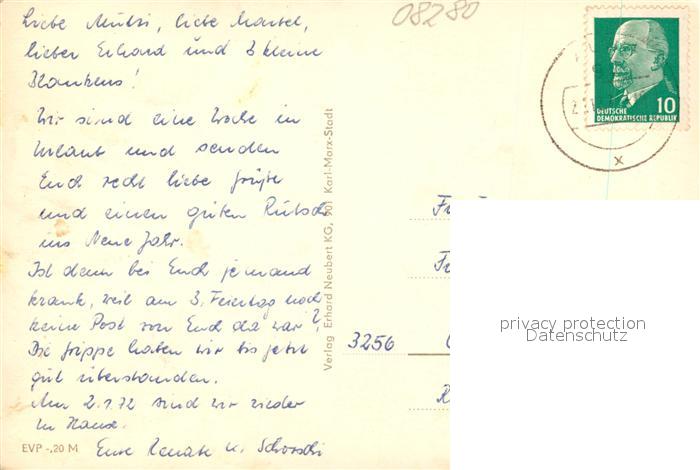 08280
Liebe Mutti, liebe Marsel,
lieber Erhard und 3 kleine
Blankens!
Wir sind eine Woche in
Urlaub und senden
Euch recht liebe Grüße
und einen guten Rutsch
ins Neue Jahr.
Ist denn bei Euch jemand
krank, weil am 3. Feiertag noch
keine Post von Euch da war?
Die Grippe haben wir bis jetzt
gut überstanden.
Am 2.1.72 sind wir wieder
zu Hause.
Eure Renate u.
EVP -,20 M
Verlag Erhard Neubert KG, 901 Karl-Marx-Stadt
10
DEUTSCHE
DEMOKRATISCHE REPUBLIK
x
3256
privacy protection
Datenschutz